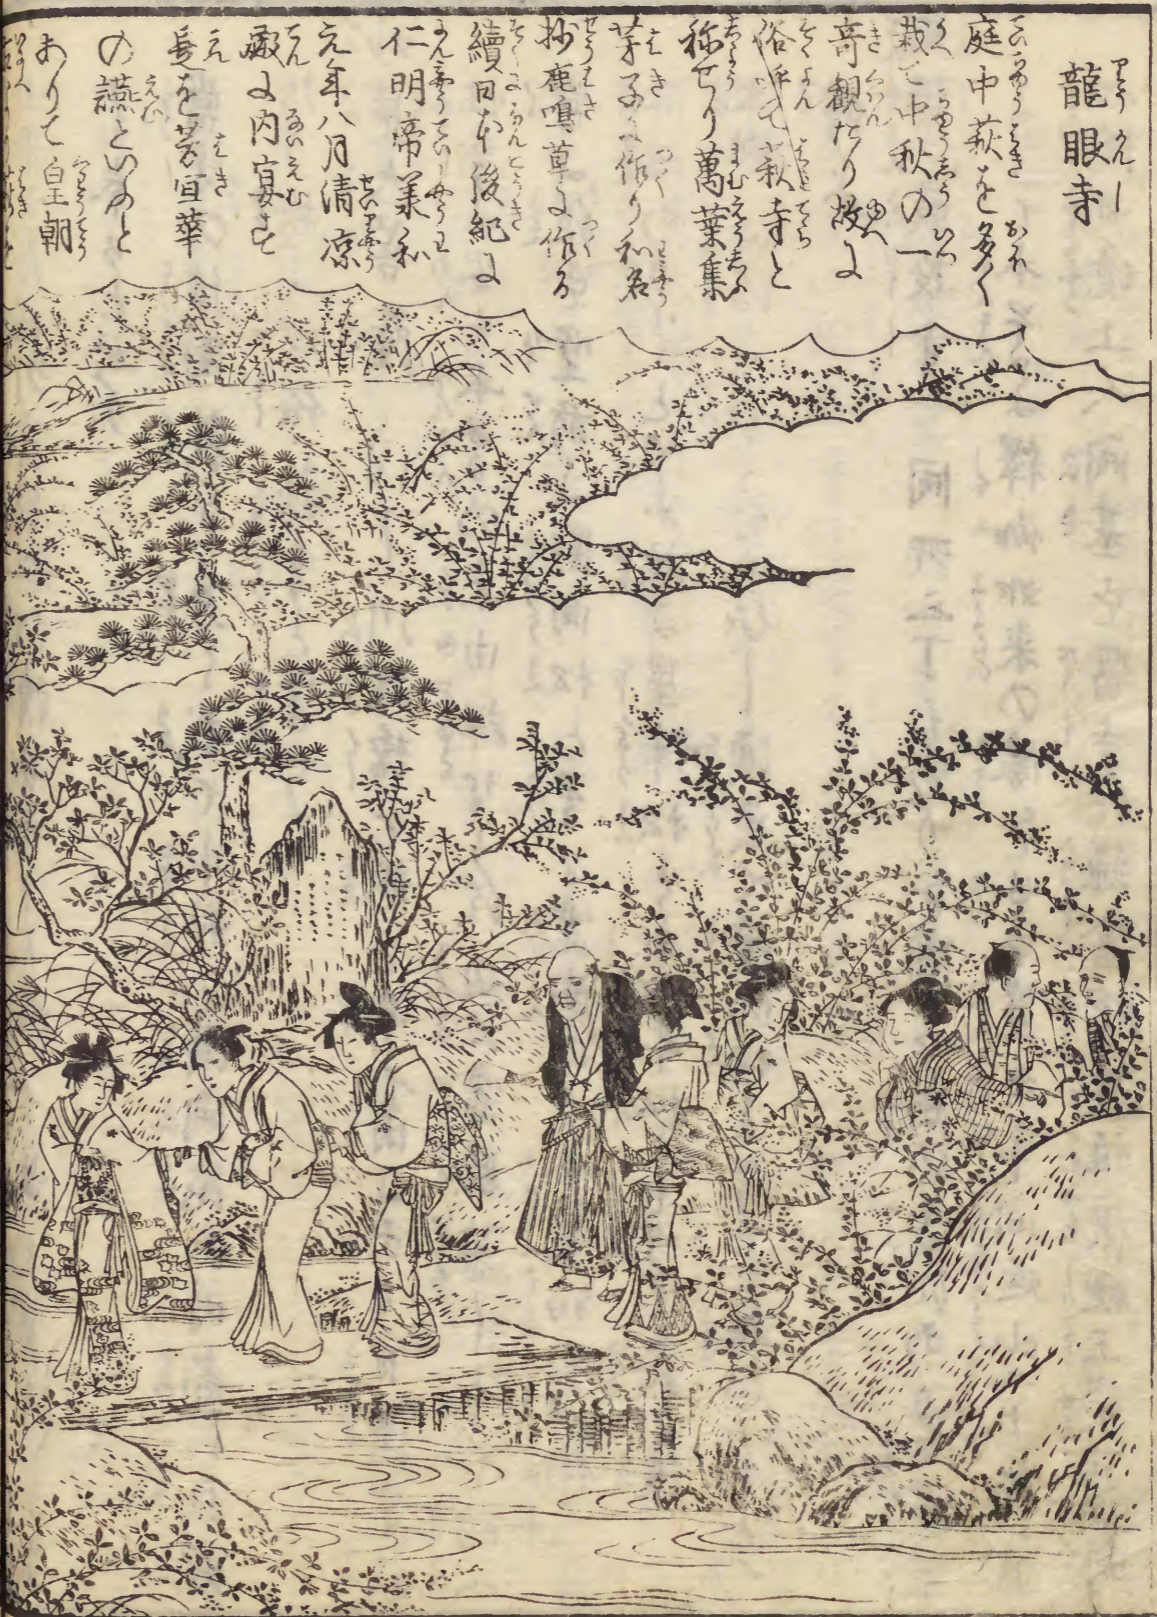 龍眼寺
庭中萩を多く
栽て中秋の一
奇観たり故に
俗呼て萩寺と
称せり萬葉集
芽子に作り和名
抄鹿鳴草に作る
續日本後紀に
仁明帝承和
元年八月清凉
殿に内宴す
是を芳宜華
の讌といふと
ありて皇朝